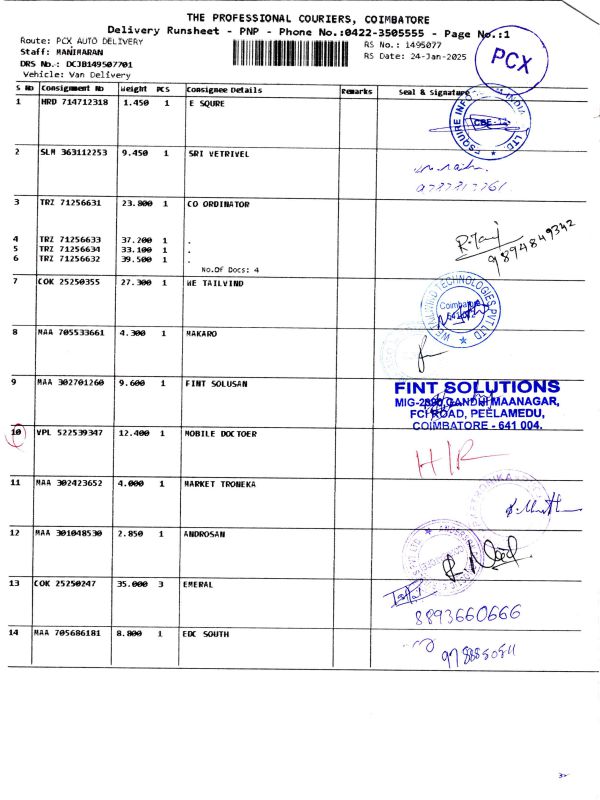 THE PROFESSIONAL COURIERS, COIMBATORE
Delivery Runsheet - PNP - Phone No.:0422-3505555 - Page No.:1
Route: PCX AUTO DELIVERY
RS No.: 1495077
Staff: MANIMARAN
RS Date: 24-Jan-2025
DRS No.: DCJB149507701
Vehicle: Van Delivery
PCX
S No Consignment No Weight PCS Consignee Details Remarks Seal & Signature
1 HRD 714712318 1.450 1 E SQURE
2 SLM 363112253 9.450 1 SRI VETRIVEL
3 TRZ 71256631 23.800 1 CO ORDINATOR
4 TRZ 71256633 37.200 1 .
5 TRZ 71256634 33.100 1 .
6 TRZ 71256632 39.500 1 .
No.Of Docs: 4
9894849342
7 COK 25250355 27.300 1 WE TAILVIND
Coimbatore
8 MAA 705533661 4.300 1 MAKARO
9 MAA 302701260 9.600 1 FINT SOLUSAN
FINT SOLUTIONS
MIG-2890, GANDHI MAANAGAR,
FCI ROAD, PEELAMEDU,
COIMBATORE - 641 004.
10 VPL 522539347 12.400 1 MOBILE DOCTOER
H/R
11 MAA 302423652 4.000 1 MARKET TRONEKA
12 MAA 301048530 2.850 1 ANDROSAN
13 COK 25250247 35.000 3 EMERAL
8893660666
14 MAA 705686181 8.800 1 EDC SOUTH